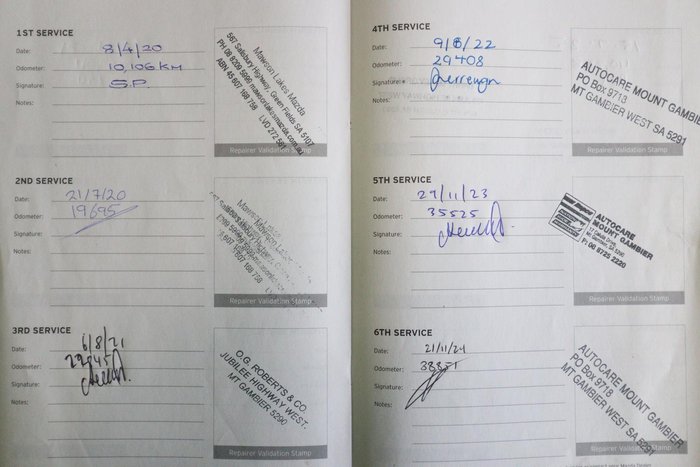 1ST SERVICE
Date: 8/4/20
Odometer: 10,106 KM
Signature: S.P.
Notes:
Mawson Lakes Mazda
567 Salisbury Highway, Green Fields SA 5107
PH 08 8209 5999 mawsonlakesmazda.com.au
ABN 45 607 168 738 LVD 272 591
Repairer Validation Stamp
2ND SERVICE
Date: 21/7/20
Odometer: 19695
Signature:
Notes:
Mawson Lakes
Repairer Validation Stamp
3RD SERVICE
Date: 6/8/21
Odometer:
Signature:
Notes:
O.G. ROBERTS & CO.
JUBILEE HIGHWAY WEST.
MT GAMBIER 5290
Repairer Validation Stamp
4TH SERVICE
Date: 9/8/22
Odometer: 29408
Signature:
Notes:
AUTOCARE MOUNT GAMBIER
PO Box 9713
MT GAMBIER WEST SA 5291
Repairer Validation Stamp
5TH SERVICE
Date: 29/11/23
Odometer: 35525
Signature:
Notes:
AUTOCARE
MOUNT GAMBIER
Ph 08 8725 2220
Repairer Validation Stamp
6TH SERVICE
Date: 21/11/24
Odometer: 38351
Signature:
Notes:
AUTOCARE MOUNT GAMBIER
PO Box 9718
MT GAMBIER WEST SA 5291
Repairer Validation Stamp